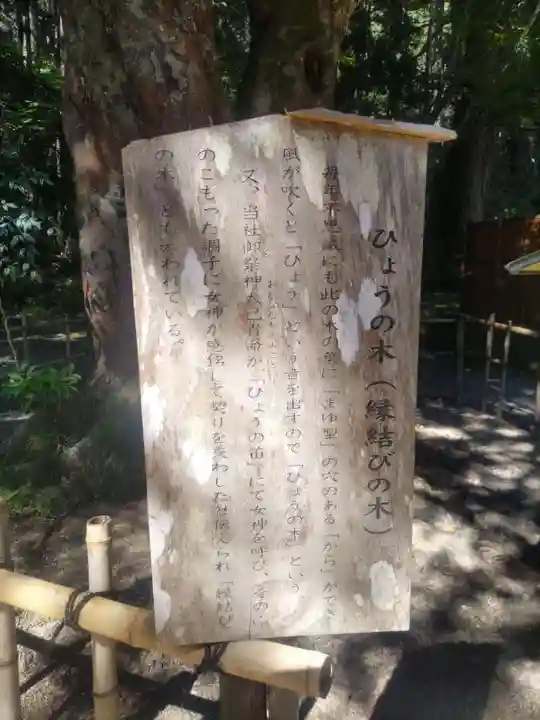 ひょうの木(縁結びの木)
毎年不思議にも此の木の葉に「まゆ型」の穴のある「から」ができ
風が吹くと「ひょう」という音を出すので「ひょうの木」という
又、当社御祭神大己貴命が、「ひょうの笛」にて女神を呼び、その
のこもった調子に女神が感応して契りを交わしたと伝えられ「縁結び
の木」とも云われている。